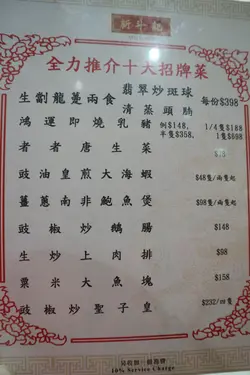 新斗記
全力推介十大招牌菜
生劏龍躉兩食 翡翠炒斑球 每份$398
清蒸頭腩
鴻運即燒乳豬 例$148, 1/4隻$188
半隻$358, 1隻$698
者者唐生菜
豉油皇煎大海蝦 $48隻/兩隻起
薑蔥南非鮑魚煲 $98隻/兩隻起
豉椒炒鵝腸 $148
生炒上肉排 $98
粟米大魚塊 $158
豉椒炒聖子皇 $232/四隻
另收加一服務費
10% Service Charge